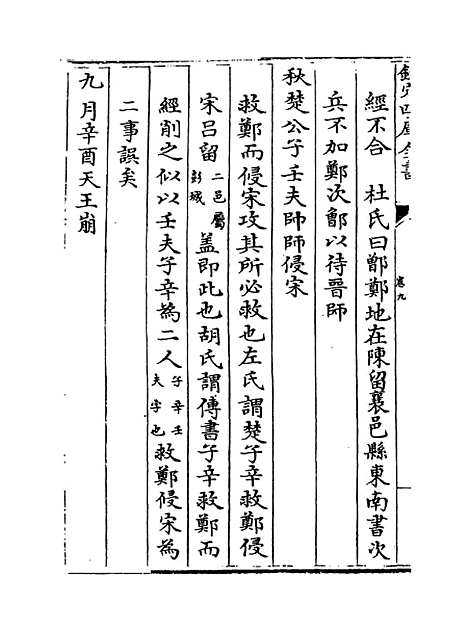 欽定四庫全書
卷九
經不合　杜氏曰鄫鄭地在陳留襄邑縣東南書次
兵不加鄭次鄫以待晉師
秋楚公子壬夫帥師侵宋
救鄭而侵宋攻其所必救也左氏謂楚子辛救鄭侵
宋呂留二邑屬彭城蓋即此也胡氏謂傳書子辛救鄭而
經削之似以壬夫子辛為二人子辛壬夫字也救鄭侵宋為
二事誤矣
九月辛酉天王崩